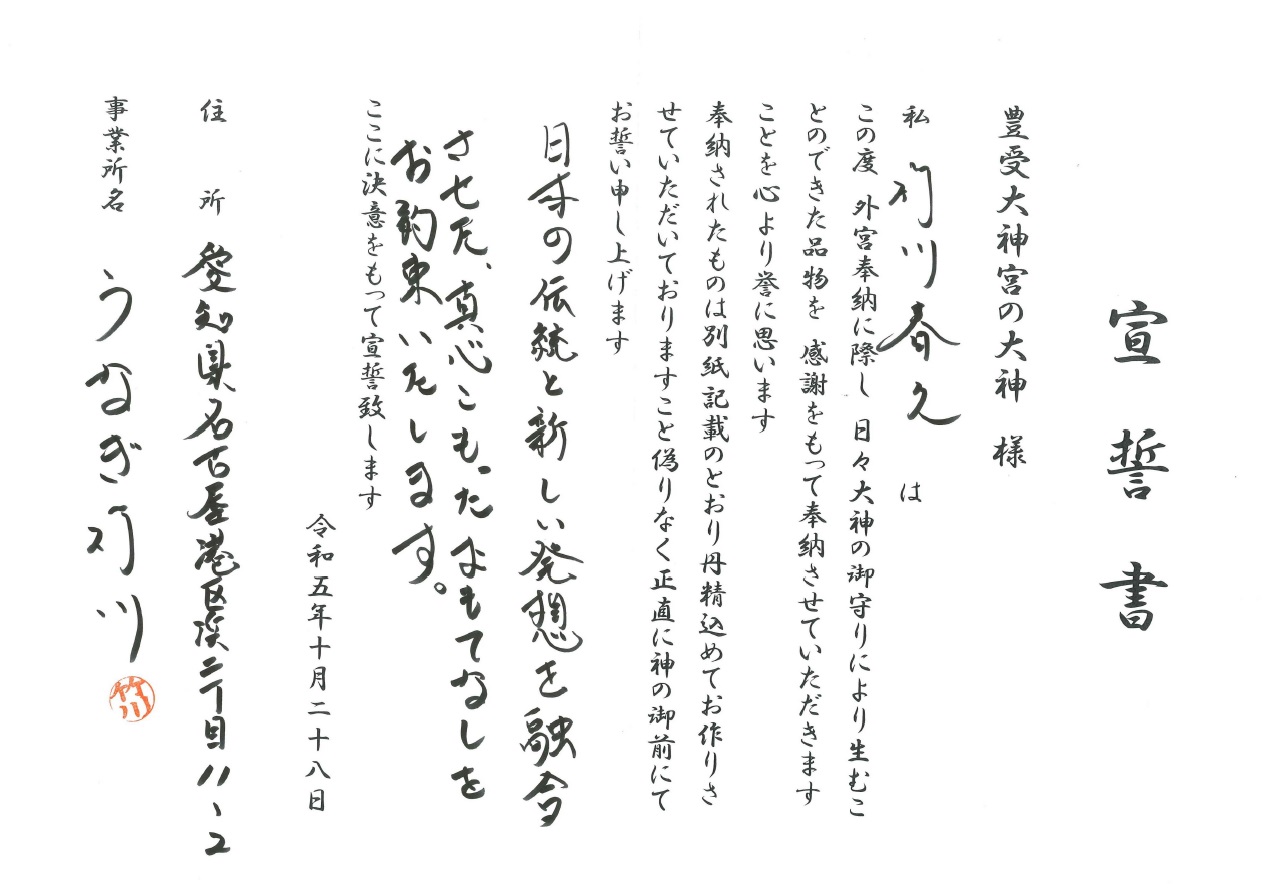 宣誓書
豊受大神宮の大神 様
私 竹川春久 は
この度 外宮奉納に際し 日々大神の御守りにより生むこ
とのできた品物を 感謝をもって奉納させていただきます
ことを心より誉に思います
奉納されたものは別紙記載のとおり丹精込めてお作りさ
せていただいておりますこと偽りなく正直に神の御前にて
お誓い申し上げます
日本の伝統と新しい発想を融合
させた、真心こもったおもてなしを
お約束いたします。
ここに決意をもって宣誓致します
令和五年十月二十八日
住所 愛知県名古屋港区 二丁目11、2
事業所名 うなぎ竹川
竹川